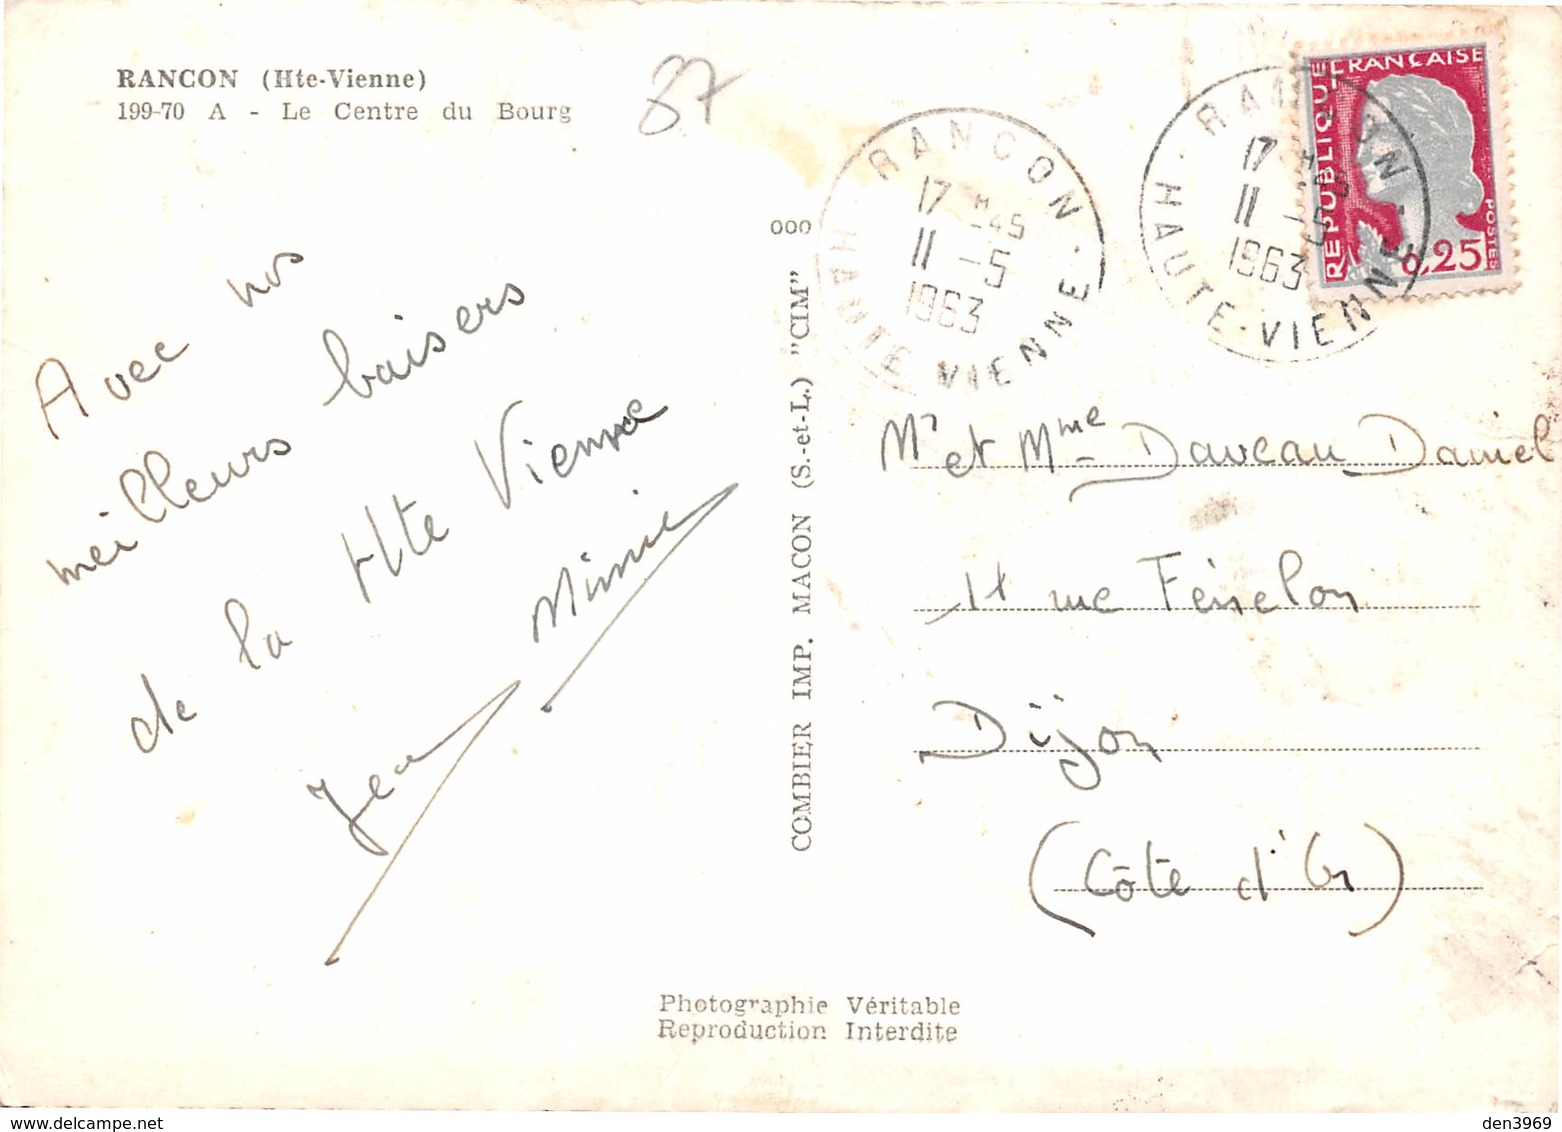 RANCON (Hte-Vienne)
199-70 A - Le Centre du Bourg
87
Avec nos
meilleurs baisers
de la Hte Vienne
Jean
Mimie
000
COMBIER IMP. MACON (S.-et-L.) "CIM"
RANCON
17 H 45
11 -5
1963
HAUTE-VIENNE
RANCON
17 H
11 -5
1963
HAUTE-VIENNE
REPUBLIQUE FRANÇAISE
0,25
POSTES
Mr et Mme Daveau Daniel
11 rue Fénelon
Dijon
(Côte d'Or)
Photographie Véritable
Reproduction Interdite
den3969